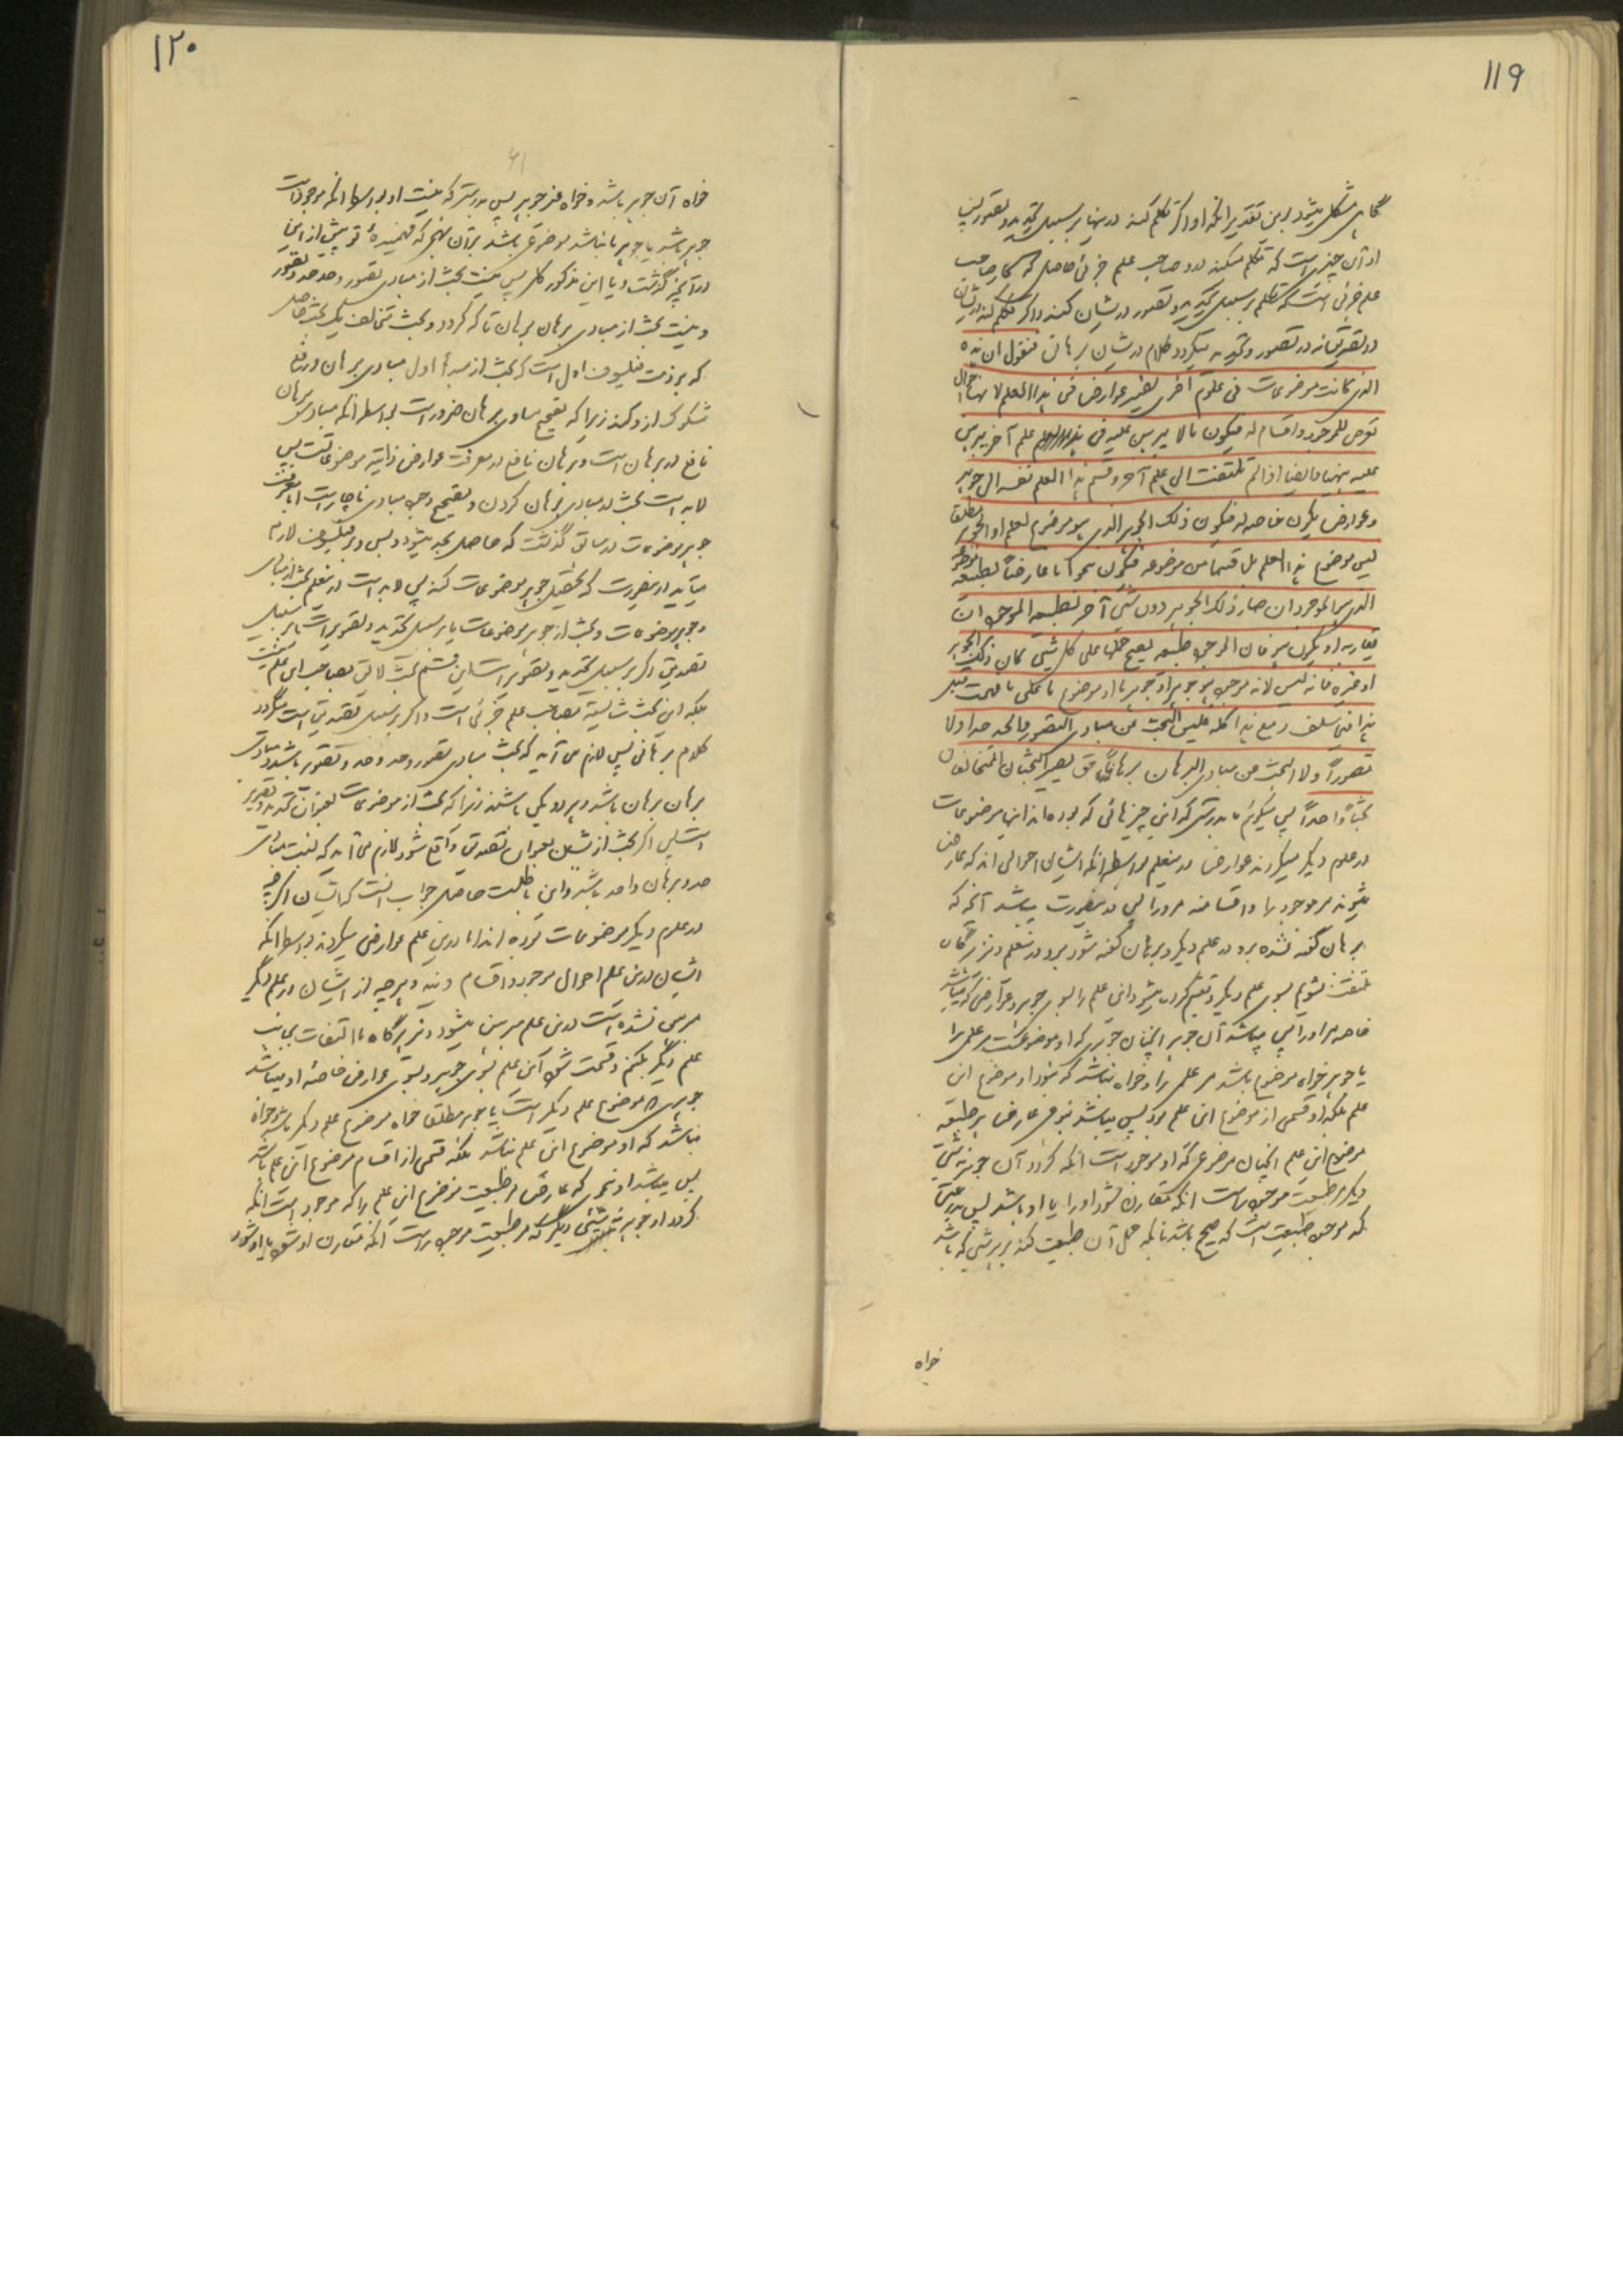 ۱۱۹
گاهی مشکل میشود برین تقدیر انکه او اکر تکلم کند درینها بر سبیل تحدید و تصور پس
او آن چیزیست که تکلم میکند در او صاحب علم جزئی حاصل که کار صاحب
علم جزئی است که تکلم بر سبیل تحدید و تصور در ایشان کند و اکر تکلم کند در ایشان
در تصدیق نه در تصور و تحدید میکردد کلام در ایشان برهانی فنقول ان هذه
التی کانت موضوعات فی علوم اخری تصیر عوارض فی هذا العلم لانها احوال
تعرض للموجود و اقسام له فیکون ما لا یبرهن علیه فی علم آخر یبرهن
علیه ههنا و ایضا اذا لم تلتفت الی علم آخر و قسم هذا العلم نفسه الی جوهر
و عوارض یکون خاصه له فیکون ذلک الجوهر الذی هو موضوع لعلم او الجوهر مطلقا
لیس موضوع هذا العلم بل قسما من موضوعه فیکون نحوا ما عارضا لطبیعه موضوعه
الذی هو الموجود ان صار ذلک الجوهر دون شئی آخر لطبیعه الموجود ان
تقارنه او یکون هو فان الموجود طبیعه یصح حملها علی کل شئی کان ذلک الجوهر
او غیره فانه لیس لانه موجود هو جوهر او جوهر ما او موضوع ما علی ما فهمت قبل
هذا فیما سلف و مع هذا کله فلیس البحث عن مبادی التصور و الحد حدا و لا
تصوراً و لا البحث عن مبادی البرهان برهاناً حتی یصیر البحثان المتخالفان
بحثاً واحداً پس میکوئیم ما بدرستی که این چیزهائی که بوده اند اینها موضوعات
در علوم دیکر میکردند عوارض در ینعلم بواسطه انکه ایشان احوالی اند که عارض
میشوند مر موجود را و اقسامند مر او را پس در ینصورت میباشد آنچه که
برهان گفته نشده برو در علم دیکر و برهان گفته شود برو در ینعلم و نیز هرگاه
ملتفت نشویم بسوی علم دیکر و تقسیم کرده میشود این علم را بسوی جوهر و عوارضی که میباشد
خاصه مر او را پس میباشد آن جوهر انچنان جوهری که او موضوعست مر علمی را
یا جوهر خواه موضوع باشد مر علمی را و خواه نباشد که نبود او موضوع این
علم بلکه او قسمی از موضوع این علم بود پس میباشد بنوعی عارض بر طبیعه
موضوع این علم انچنان موضوعی که او موجود است انکه گردد آن جوهر نه شئی
دیکر مر طبیعت موجود راست انکه مقارن شود او را یا او باشد پس بدرستی
که موجود طبیعتی است که صحیح باشد بانکه حمل آن طبیعت کنند بر هر شئی که باشد
خواه
۱۲۰
۶۱
خواه آن جوهر باشد و خواه غیر جوهر پس بدرستی که نیست او بواسطه انکه موجود است
جوهر باشد یا جوهر ما باشد یا موضوعی باشد بر آن نهج که فهمیدهٔ تو پیش از این
در آنچیز گذشت و با این مذکور کل پس نیست بحث از مبادی تصور و حد حد و تصور
و نیست بحث از مبادی برهان برهان تا که کردد دو بحث متخالف یک بحث حاصل
که بر ذمت فیلسوف اول است که بحث از مبدأ اول مبادی برهان و رفع
شکوک از او کند زیرا که تصحیح مبادی برهان ضرور است بواسطه انکه مبادی برهان
نافع در برهان است و برهان نافع در معرفت عوارض ذاتیه موضوعاتست پس
لابد است بحث در مبادی برهان کردن و تصحیح وجه مبادی ناچار است اما معرفت
جوهر موضوعات در سابق گذشت که حاصل بحد میشود و بس و بر فیلسوف لازم
میآید در ینصورت که تحصیل جوهر موضوعات کند پس لابد است در ینعلم بحث از مبادی
و جوهر موضوعات و بحث از جوهر موضوعات یا بر سبیل تحدید و تصویر است یا بر سبیل
تصدیق اکر بر سبیل تحدید و تصویر است این قسم بحث لایق بصاحب این علم نیست
بلکه این بحث شایسته بصاحب علم جزئی است و اکر بر سبیل تصدیق است میکردد
کلام برهانی پس لازم می آید که بحث مبادی تصور و حد و حد و تصور باشد و مبادی
برهان برهان باشد و هر دو یکی باشند زیرا که بحث از موضوعات بعنوان تحدید و تصویر
است پس اکر بحث از ایشان بعنوان تصدیق واقع شود لازم می آید که نسبت مبادی
حد و برهان واحد باشد و این باطلست حاصل جواب انست که ایشان اکرچه
در علوم دیکر موضوعات بوده اند اما درین علم عوارض میکردند بواسطه انکه
ایشان درین علم احوال موجود و اقسام ویند و هرچه از ایشان در علم دیگر
مبرهن نشده است درین علم مبرهن میشود و نیز هرگاه ما التفات بجانب
علم دیگر نکنیم و قسمت شود این علم بسوی جوهر و بسوی عوارض خاصه او میباشد
جوهری که موضوع علم دیکر است یا جوهر مطلق خواه موضوع علم دیکر باشد و خواه
نباشد که او موضوع این علم نباشد بلکه قسمی از اقسام موضوع این علم باشد
پس میباشد او نحوی که عارض مر طبیعت موضوع این علم را که موجود است انکه
کردد او جوهر نه شئی دیگر که مر طبیعت موجود راست انکه مقارن او شود یا او شود